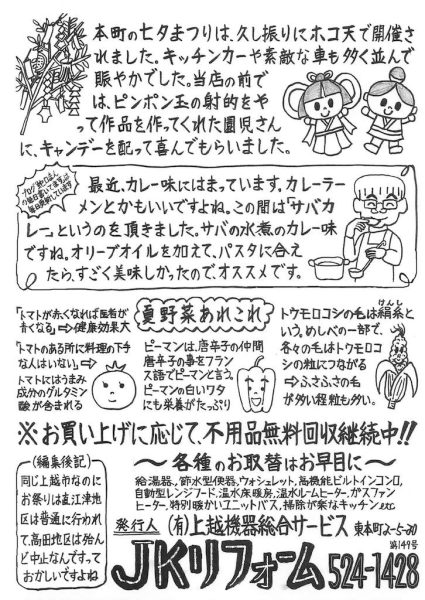 本町の七夕まつりは、久し振りにホコ天で開催さ
れました。キッチンカーや素敵な車も多く並んで
賑やかでした。当店の前で
は、ピンポン玉の射的をや
って作品を作ってくれた園児さん
に、キャンデーを配って喜んでもらいました。
最近、カレー味にはまっています。カレーラー
メンとかもいいですよね。この間は「サバカ
レー。」というのを頂きました。サバの水煮のカレー味
ですね。オリーブオイルを加えて、パスタに合え
たら、すごく美味しかったので、オススメです。
夏野菜あれこれ
「トマトが赤くなれば医者が
青くなる」⇨健康効果大
「トマトのある所に料理の下手
な人はいない」⇨
トマトにはうまみ
成分のグルタミン
酸が含まれる
ピーマンは、唐辛子の仲間
唐辛子の事をフラン
ス語でピーマンと言う。
ピーマンの白いワタ
にも栄養がたっぷり
けんし
トウモロコシの毛は絹糸と
いう。めしべの一部で、
各々の毛はトウモロコ
シの粒につながる
⇨ふさふさの毛
が多い程粒も多い。
※お買い上げに応じて、不用品無料回収継続中!!
～各種のお取替はお早目に～
給湯器、節水型便器、ウォシュレット、高機能ビルトインコンロ、
自動型レンジフード、温水床暖房、温水ルームヒーター、ガスファン
ヒーター、特別暖かいユニットバス、掃除が楽なキッチンetc
(編集後記)
同じ上越市なのに
お祭りは直江津地
区は普通に行われ
て、高田地区は殆ん
ど中止なんですって
おかしいですよね
発行人 (有)上越機器総合サービス 東本町2-5-30
第149号
JKリフォーム 524-1428